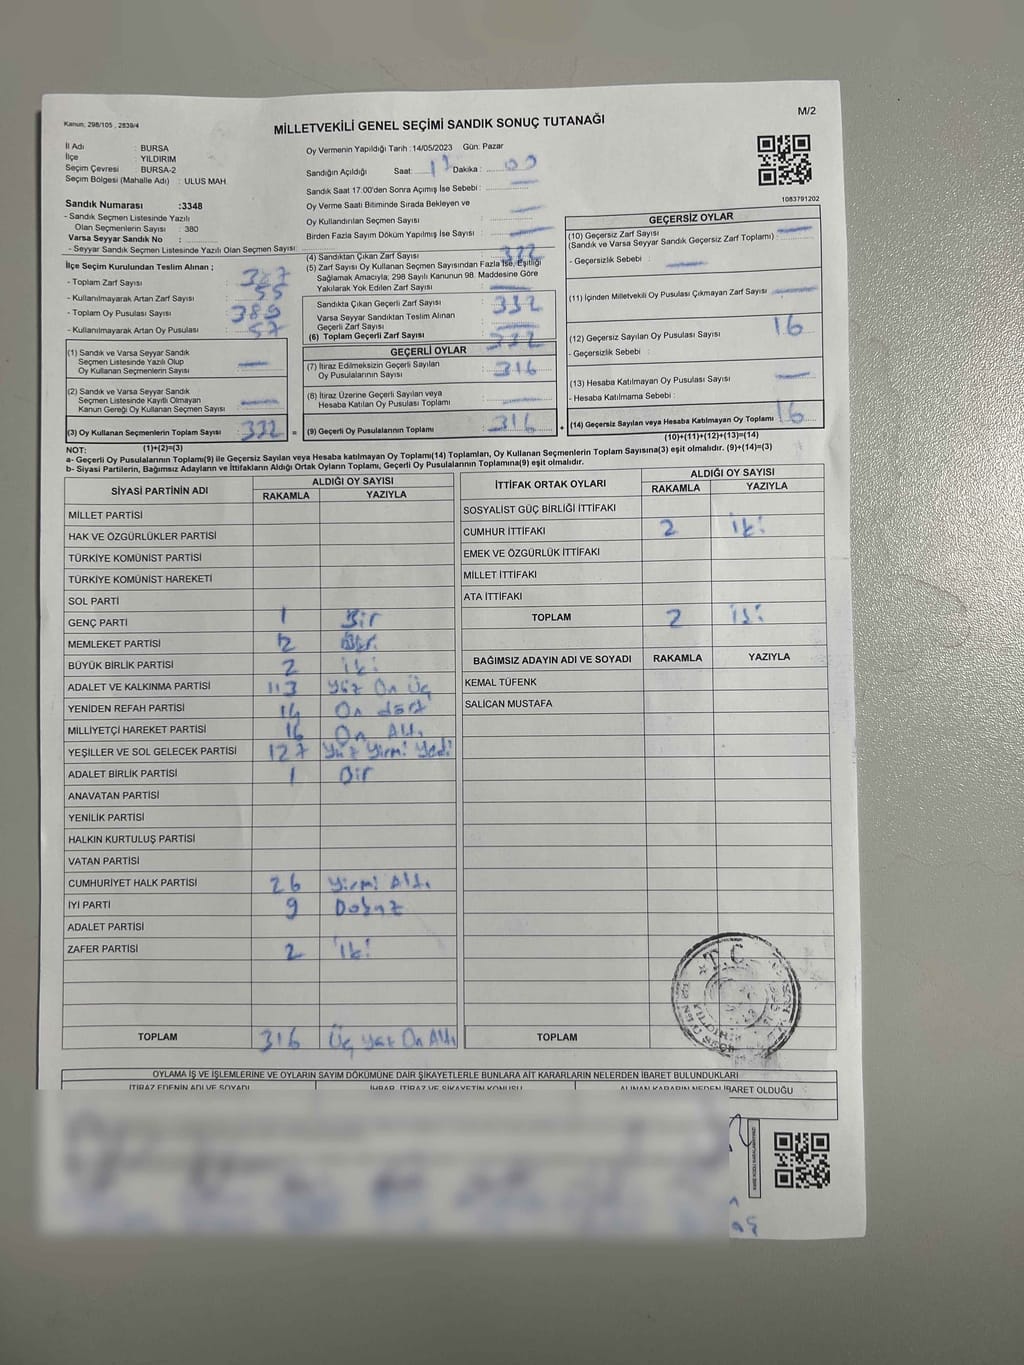 Kanun, 298/105 , 2839/4
MİLLETVEKİLİ GENEL SEÇİMİ SANDIK SONUÇ TUTANAĞI
M/2
İl Adı : BURSA
İlçe : YILDIRIM
Seçim Çevresi : BURSA-2
Seçim Bölgesi (Mahalle Adı) : ULUS MAH.
Sandık Numarası :3348
- Sandık Seçmen Listesinde Yazılı
Olan Seçmenlerin Sayısı : 380
Varsa Seyyar Sandık No :
- Seyyar Sandık Seçmen Listesinde Yazılı Olan Seçmen Sayısı:
Oy Vermenin Yapıldığı Tarih : 14/05/2023 Gün: Pazar
Sandığın Açıldığı Saat: Dakika : 00
Sandık Saat 17:00'den Sonra Açımış İse Sebebi :
Oy Verme Saati Bitiminde Sırada Bekleyen ve
Oy Kullandırılan Seçmen Sayısı :
Birden Fazla Sayım Döküm Yapılmış İse Sayısı :
1083791202
İlçe Seçim Kurulundan Teslim Alınan ;
- Toplam Zarf Sayısı : 387
- Kullanılmayarak Artan Zarf Sayısı : 55
- Toplam Oy Pusulası Sayısı : 389
- Kullanılmayarak Artan Oy Pusulası : 57
(1) Sandık ve Varsa Seyyar Sandık
Seçmen Listesinde Yazılı Olup
Oy Kullanan Seçmenlerin Sayısı :
(2) Sandık ve Varsa Seyyar Sandık
Seçmen Listesinde Kayıtlı Olmayan
Kanun Gereği Oy Kullanan Seçmen Sayısı :
(3) Oy Kullanan Seçmenlerin Toplam Sayısı : 332 =
(1)+(2)=(3)
(4) Sandıktan Çıkan Zarf Sayısı : 332
(5) Zarf Sayısı Oy Kullanan Seçmen Sayısından Fazla İse, Eşitliği
Sağlamak Amacıyla; 298 Sayılı Kanunun 98. Maddesine Göre
Yakılarak Yok Edilen Zarf Sayısı :
Sandıkta Çıkan Geçerli Zarf Sayısı : 332
Varsa Seyyar Sandıktan Teslim Alınan
Geçerli Zarf Sayısı :
(6) Toplam Geçerli Zarf Sayısı : 332
GEÇERLİ OYLAR
(7) İtiraz Edilmeksizin Geçerli Sayılan
Oy Pusulalarının Sayısı : 316
(8) İtiraz Üzerine Geçerli Sayılan veya
Hesaba Katılan Oy Pusulası Toplamı :
(9) Geçerli Oy Pusulalarının Toplamı : 316 +
GEÇERSİZ OYLAR
(10) Geçersiz Zarf Sayısı
(Sandık ve Varsa Seyyar Sandık Geçersiz Zarf Toplamı) :
- Geçersizlik Sebebi :
(11) İçinden Milletvekili Oy Pusulası Çıkmayan Zarf Sayısı :
(12) Geçersiz Sayılan Oy Pusulası Sayısı : 16
- Geçersizlik Sebebi :
(13) Hesaba Katılmayan Oy Pusulası Sayısı :
- Hesaba Katılmama Sebebi :
(14) Geçersiz Sayılan veya Hesaba Katılmayan Oy Toplamı : 16
(10)+(11)+(12)+(13)=(14)
NOT:
a- Geçerli Oy Pusulalarının Toplamı(9) ile Geçersiz Sayılan veya Hesaba katılmayan Oy Toplamı(14) Toplamları, Oy Kullanan Seçmenlerin Toplam Sayısına(3) eşit olmalıdır. (9)+(14)=(3)
b- Siyasi Partilerin, Bağımsız Adayların ve İttifakların Aldığı Ortak Oyların Toplamı, Geçerli Oy Pusulalarının Toplamına(9) eşit olmalıdır.
SİYASİ PARTİNİN ADI
ALDIĞI OY SAYISI
RAKAMLA YAZIYLA
MİLLET PARTİSİ
HAK VE ÖZGÜRLÜKLER PARTİSİ
TÜRKİYE KOMÜNİST PARTİSİ
TÜRKİYE KOMÜNİST HAREKETİ
SOL PARTİ
GENÇ PARTİ 1 Bir
MEMLEKET PARTİSİ 2
BÜYÜK BİRLİK PARTİSİ 2 iki
ADALET VE KALKINMA PARTİSİ 113 Yüz On Üç
YENİDEN REFAH PARTİSİ 14 On dört
MİLLİYETÇİ HAREKET PARTİSİ 16 On Altı
YEŞİLLER VE SOL GELECEK PARTİSİ 127 Yüz Yirmi Yedi
ADALET BİRLİK PARTİSİ 1 Bir
ANAVATAN PARTİSİ
YENİLİK PARTİSİ
HALKIN KURTULUŞ PARTİSİ
VATAN PARTİSİ
CUMHURİYET HALK PARTİSİ 26 Yirmi Altı
İYİ PARTİ 9 Dokuz
ADALET PARTİSİ
ZAFER PARTİSİ 2 iki
TOPLAM 316 Üç Yüz On Altı
İTTİFAK ORTAK OYLARI
ALDIĞI OY SAYISI
RAKAMLA YAZIYLA
SOSYALİST GÜÇ BİRLİĞİ İTTİFAKI
CUMHUR İTTİFAKI 2 iki
EMEK VE ÖZGÜRLÜK İTTİFAKI
MİLLET İTTİFAKI
ATA İTTİFAKI
TOPLAM 2 iki
BAĞIMSIZ ADAYIN ADI VE SOYADI RAKAMLA YAZIYLA
KEMAL TÜFENK
SALİCAN MUSTAFA
TOPLAM
T.C.
OYLAMA İŞ VE İŞLEMLERİNE VE OYLARIN SAYIM DÖKÜMÜNE DAİR ŞİKAYETLERLE BUNLARA AİT KARARLARIN NELERDEN İBARET BULUNDUKLARI
İTİRAZ EDENİN ADI VE SOYADI İHBAR, İTİRAZ VE ŞİKAYETİN KONUSU ALINAN KARARIN NEDEN İBARET OLDUĞU